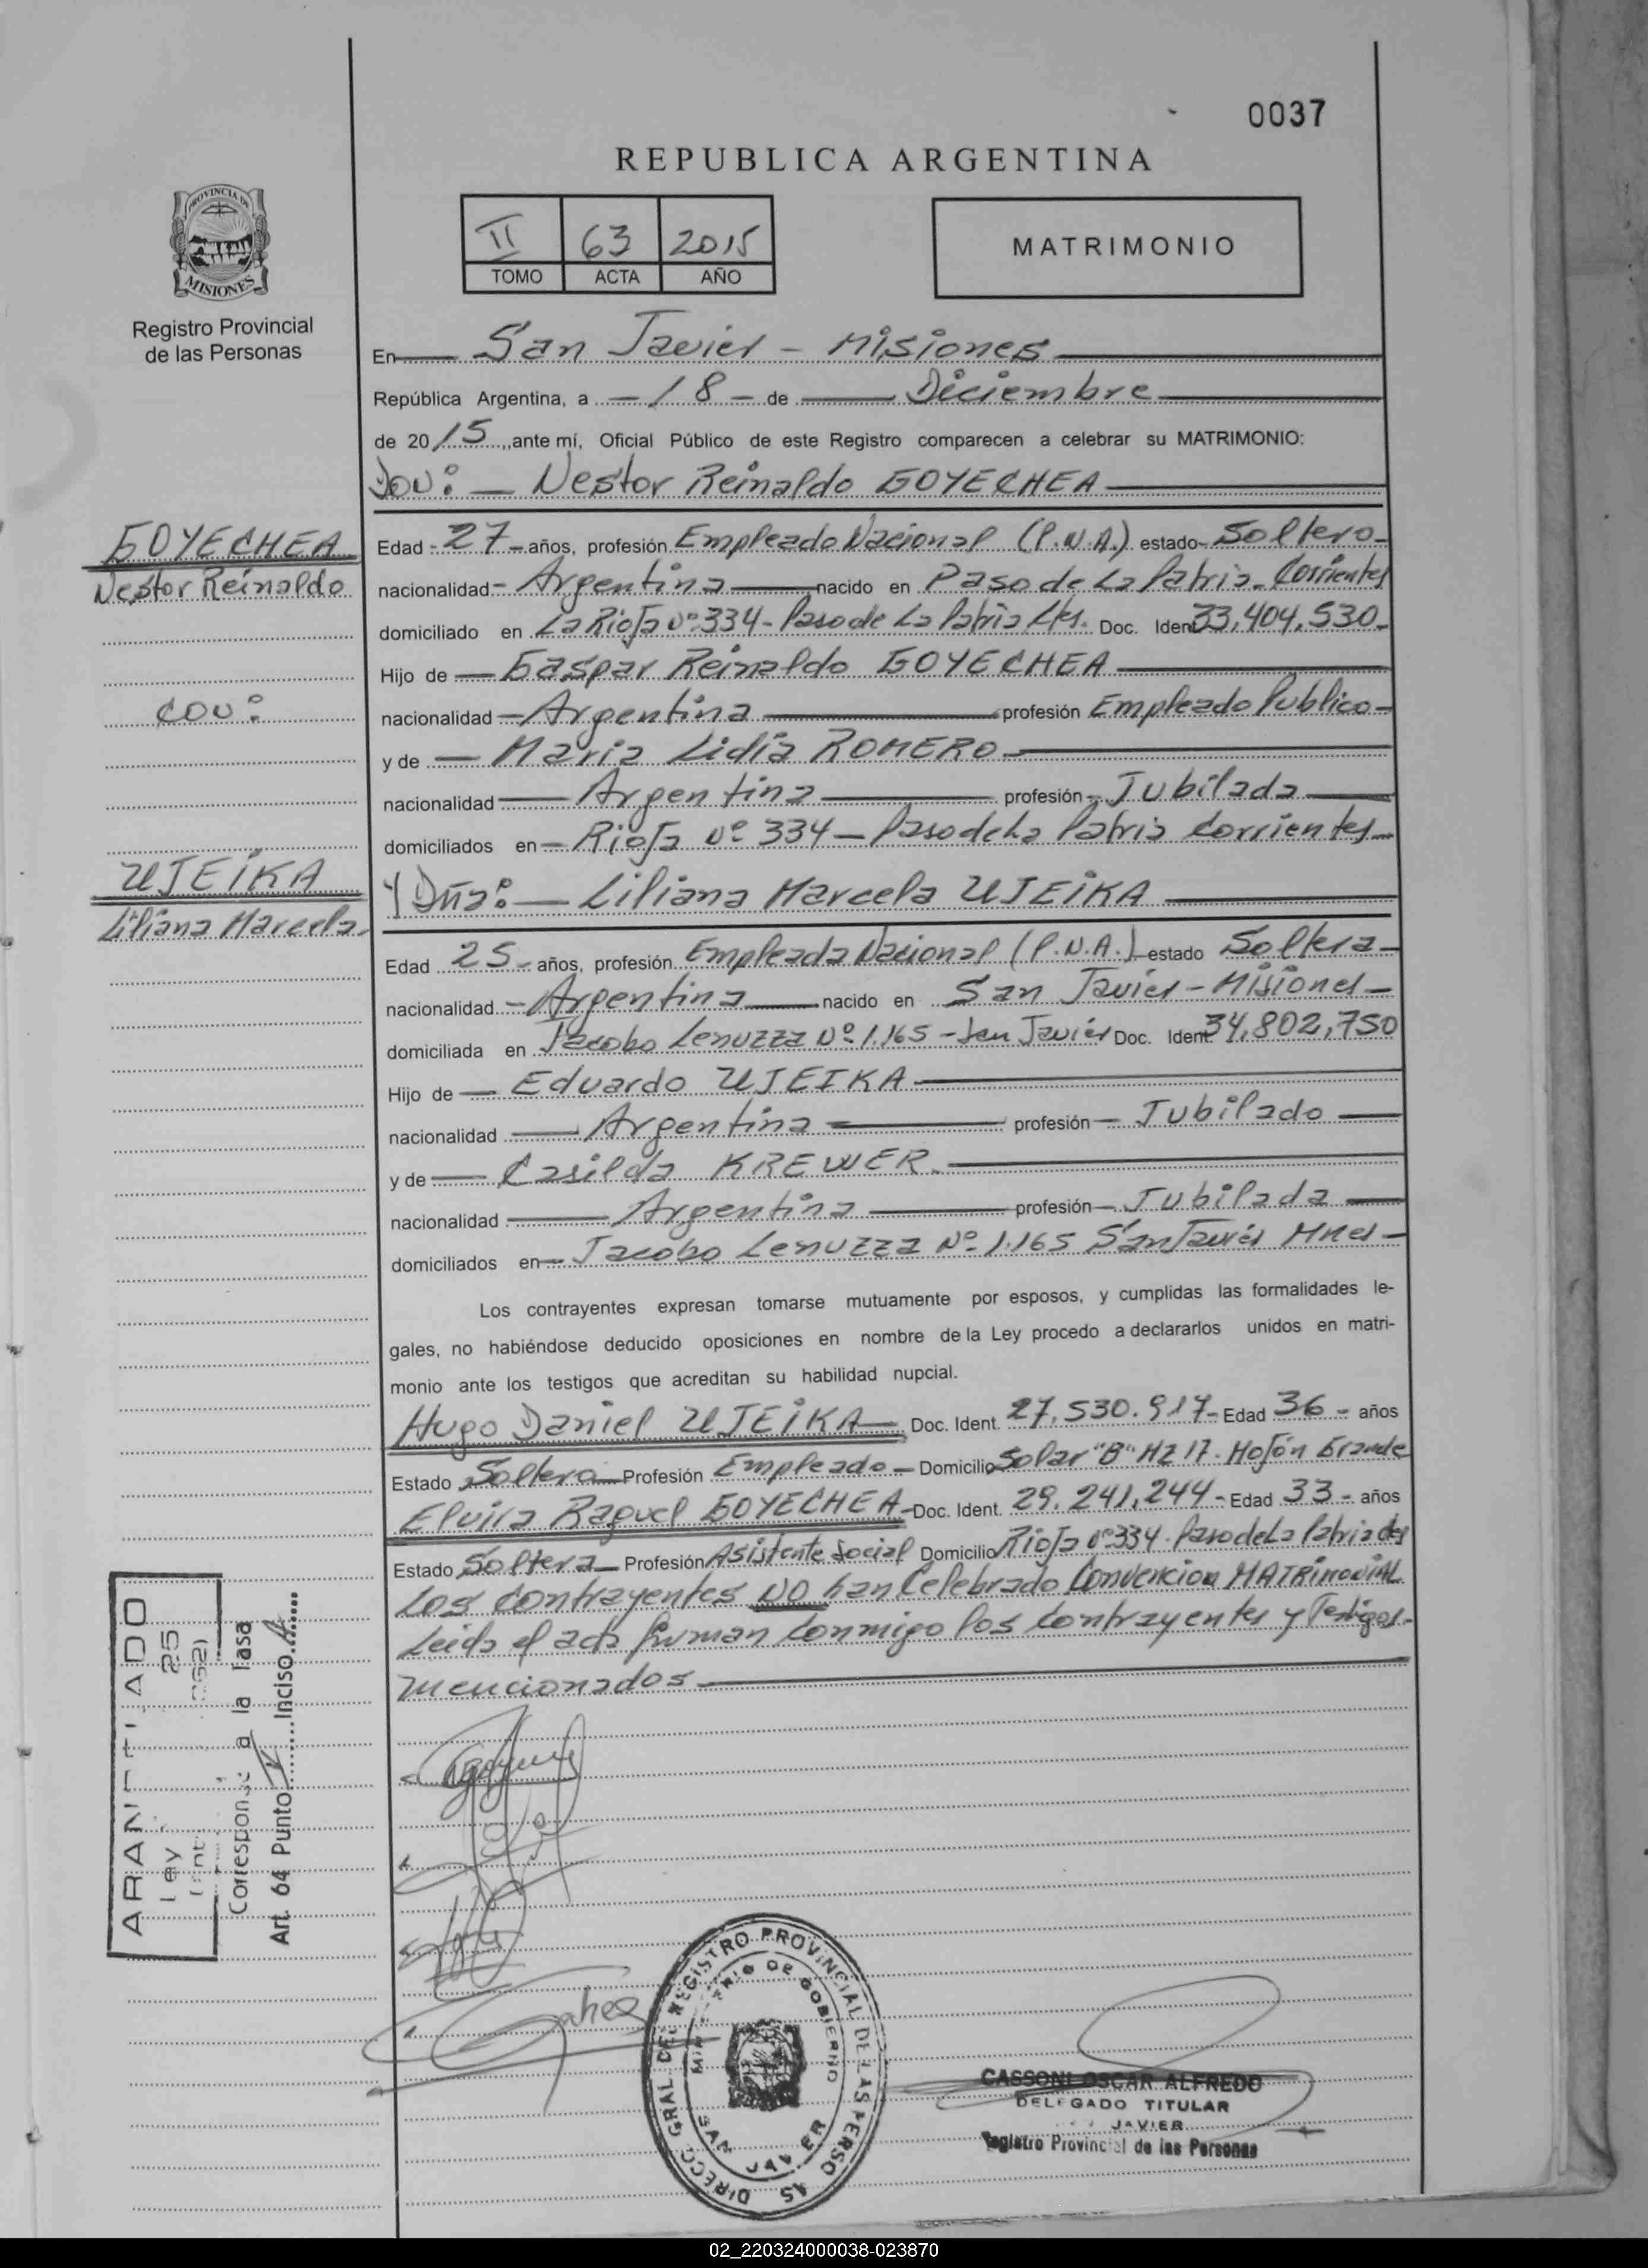 0037
REPUBLICA ARGENTINA
PROVINCIA DE
MISIONES
Registro Provincial
de las Personas
II 63 2015
TOMO ACTA AÑO
MATRIMONIO
En San Javier - Misiones
República Argentina, a 18 de Diciembre
de 2015, ante mí, Oficial Público de este Registro comparecen a celebrar su MATRIMONIO:
Don: Nestor Reinaldo GOYECHEA
GOYECHEA
Nestor Reinaldo
con:
UJEIKA
Liliana Marcela
Edad 27 años, profesión Empleado Nacional (P.N.A.) estado Soltero
nacionalidad Argentina nacido en Paso de La Patria - Corrientes
domiciliado en La Rioja Nº 334 - Paso de La Patria Ctes. Doc. Ident 33,404,530
Hijo de Gaspar Reinaldo GOYECHEA
nacionalidad Argentina profesión Empleado Publico
y de Maria Lidia ROMERO
nacionalidad Argentina profesión Jubilada
domiciliados en Rioja Nº 334 - Paso de La Patria Corrientes
Y Dña: Liliana Marcela UJEIKA
Edad 25 años, profesión Empleada Nacional (P.N.A.) estado Soltera
nacionalidad Argentina nacido en San Javier - Misiones
domiciliada en Jacobo Lenuzza Nº 1.165 - San Javier Doc. Ident 34,802,750
Hijo de Eduardo UJEIKA
nacionalidad Argentina profesión Jubilado
y de Casilda KREWER
nacionalidad Argentina profesión Jubilada
domiciliados en Jacobo Lenuzza Nº 1.165 San Javier Mnes
Los contrayentes expresan tomarse mutuamente por esposos, y cumplidas las formalidades le-
gales, no habiéndose deducido oposiciones en nombre de la Ley procedo a declararlos unidos en matri-
monio ante los testigos que acreditan su habilidad nupcial.
Hugo Daniel UJEIKA Doc. Ident. 27,530.917 Edad 36 años
Estado Soltero Profesión Empleado Domicilio Solar "B" Mz 17. Mojón Grande
Elvira Raquel GOYECHEA Doc. Ident. 29.241,244 Edad 33 años
Estado Soltera Profesión Asistente Social Domicilio Rioja Nº 334 Paso de La Patria Ctes
Los contrayentes NO han Celebrado Convencion MATRIMONIAL
Leida el acta firman conmigo los contrayentes y Testigos
mencionados
Ley 25
Corresponde a la Tasa
Art. 64 Punto Inciso
DIRECC. GRAL. DEL REGISTRO PROVINCIAL DE LAS PERSONAS
MINISTERIO DE GOBIERNO
SAN JAVIER
CASSONI OSCAR ALFREDO
DELEGADO TITULAR
JAVIER
Registro Provincial de las Personas
02_220324000038-023870